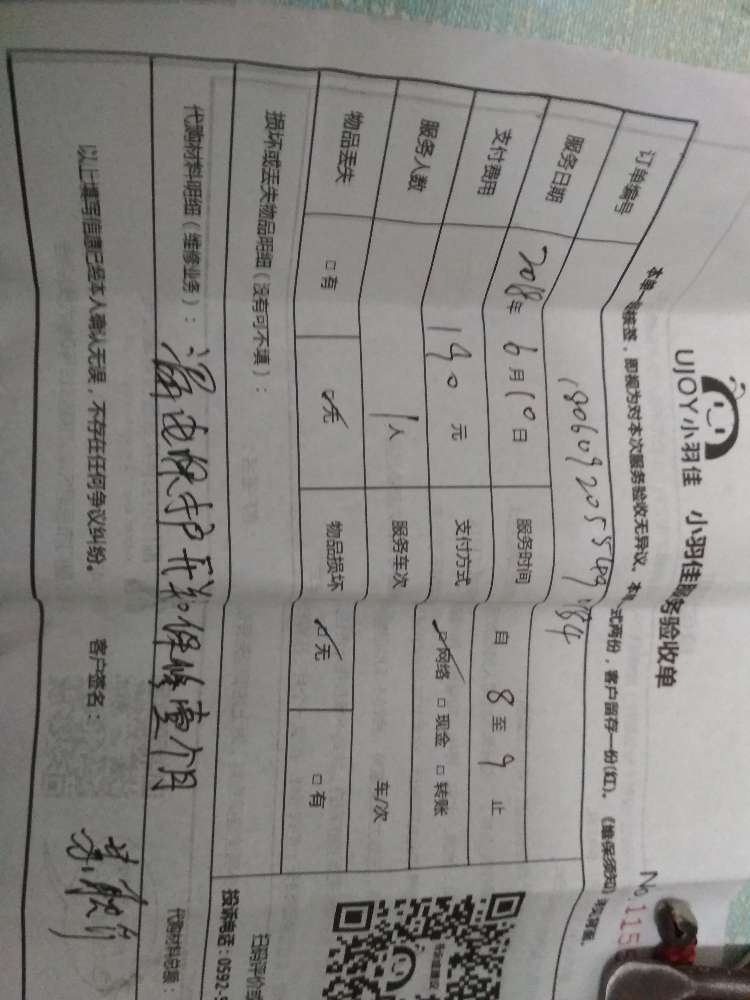 UJOY小羽佳 小羽佳服务验收单
No.115
本单 核签，即视为对本次服务验收无异议。本 式两份，客户留存一份(红)。《维保须知》
订单编号
服务日期 2018年6月10日 服务时间 自 8 至 9 止
支付费用 190元 支付方式 ☑网络 □现金 □转账
服务人数 1人 服务车次 车/次
物品丢失 □有 ☑无 物品损坏 ☑无 □有
损坏或丢失物品明细（没有可不填）：
代购材料明细（维修业务）： 漏电保护开关保修壹个月
代购材料总额：
以上填写信息已经本人确认无误，不存在任何争议纠纷。 客户签名：
扫码评价
投诉电话：0592-